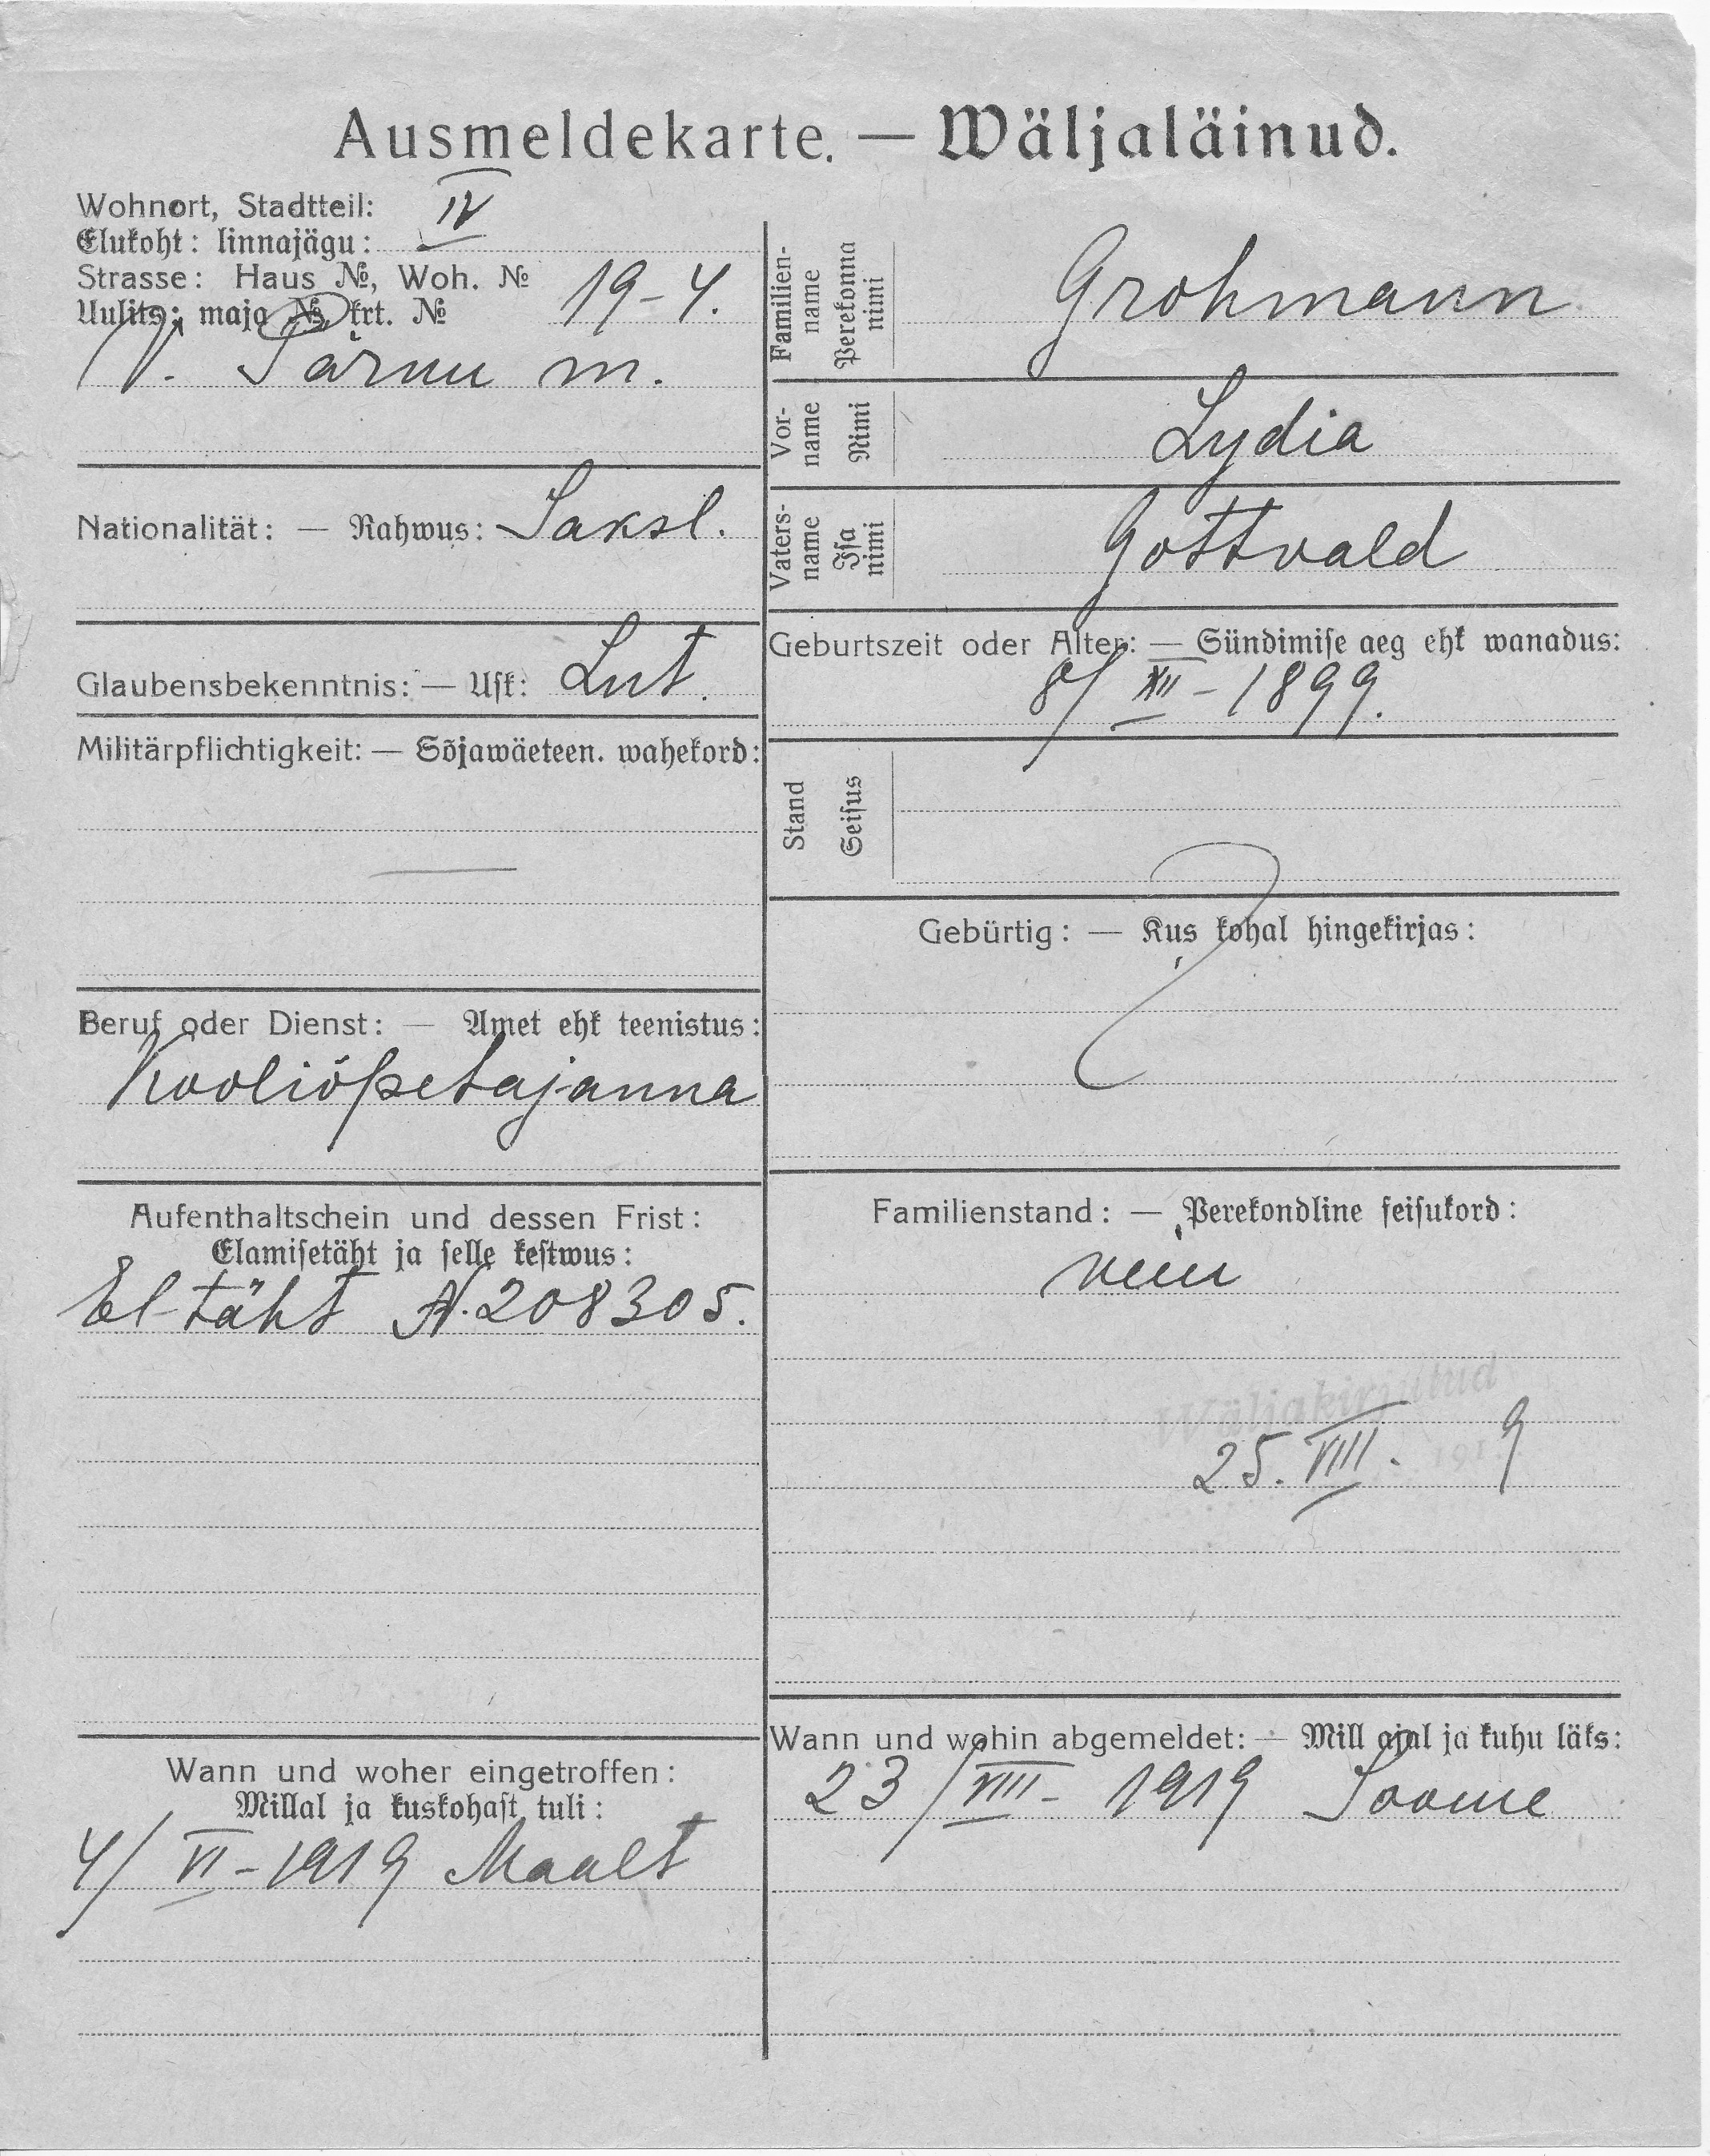 Ausmeldekarte. — Wäljaläinud.
Wohnort, Stadtteil: IV
Elukoht: linnajägu:
Strasse: Haus №, Woh. № 19-4.
Uulits: maja №, krt. №
V. Pärnu m.
Nationalität: — Rahwus: Saksl.
Glaubensbekenntnis: — Usk: Lut.
Militärpflichtigkeit: — Sõjawäeteen. wahekord:
—
Beruf oder Dienst: — Amet ehk teenistus:
Kooliõpetajanna
Aufenthaltschein und dessen Frist:
Elamisetäht ja selle kestwus:
El-täht N. 208305.
Wann und woher eingetroffen:
Millal ja kuskohast tuli:
4/VI-1919 Maalt
Familien-
name
Perekonna
nimi
Grohmann
Vor-
name
Nimi
Lydia
Vaters-
name
Isa
nimi
Gottvald
Geburtszeit oder Alter: — Sündimise aeg ehk wanadus:
8/XII-1899.
Stand
Seisus
Gebürtig: — Kus kohal hingekirjas:
Familienstand: — Perekondline seisukord:
neiu
Wäljakirjutud
25. VIII. 1919
Wann und wohin abgemeldet: — Mill ajal ja kuhu läks:
23/VIII-1919 Soome